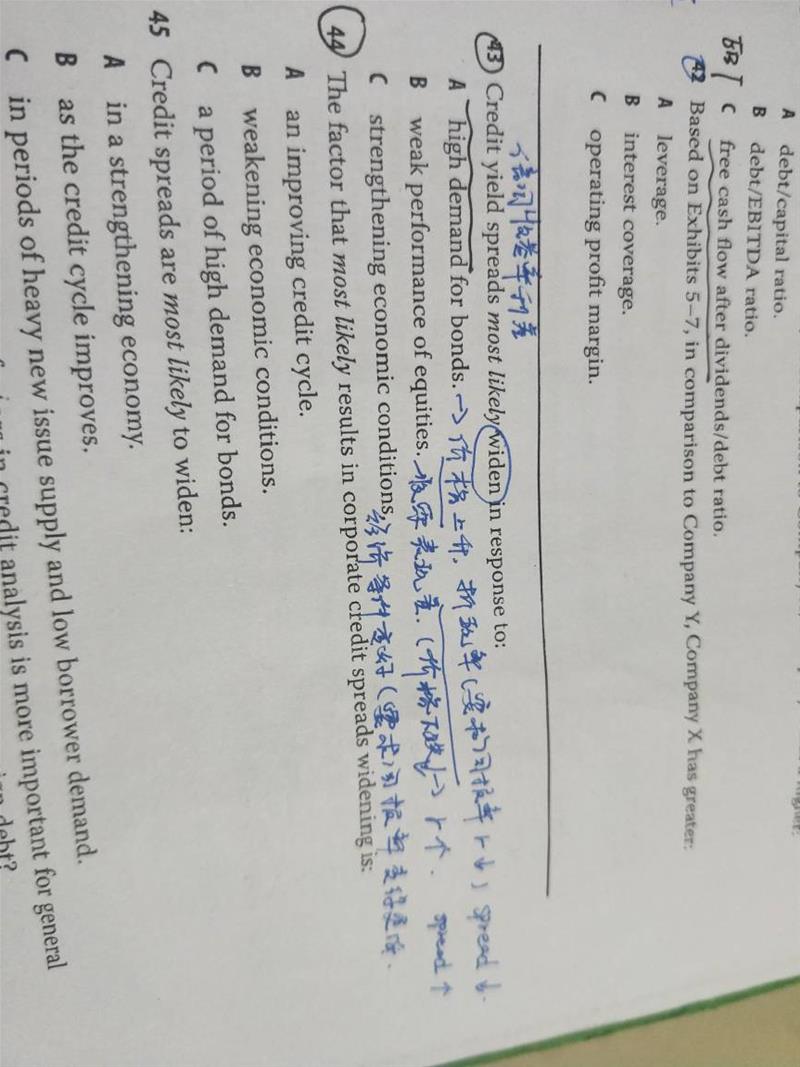 A debt/capital ratio.
B debt/EBITDA ratio.
C free cash flow after dividends/debt ratio.
42 Based on Exhibits 5–7, in comparison to Company Y, Company X has greater:
A leverage.
B interest coverage.
C operating profit margin.
43 Credit yield spreads most likely widen in response to:
A high demand for bonds. → 价格上升, 折现率(要求回报率 r ↓) spread ↓.
B weak performance of equities. 股票表现差. (价格下跌) → r ↑. spread ↑
C strengthening economic conditions. 经济条件变好 (要求回报率
44 The factor that most likely results in corporate credit spreads widening is:
A an improving credit cycle.
B weakening economic conditions.
C a period of high demand for bonds.
45 Credit spreads are most likely to widen:
A in a strengthening economy.
B as the credit cycle improves.
C in periods of heavy new issue supply and low borrower demand.
in credit analysis is more important for general
debt?